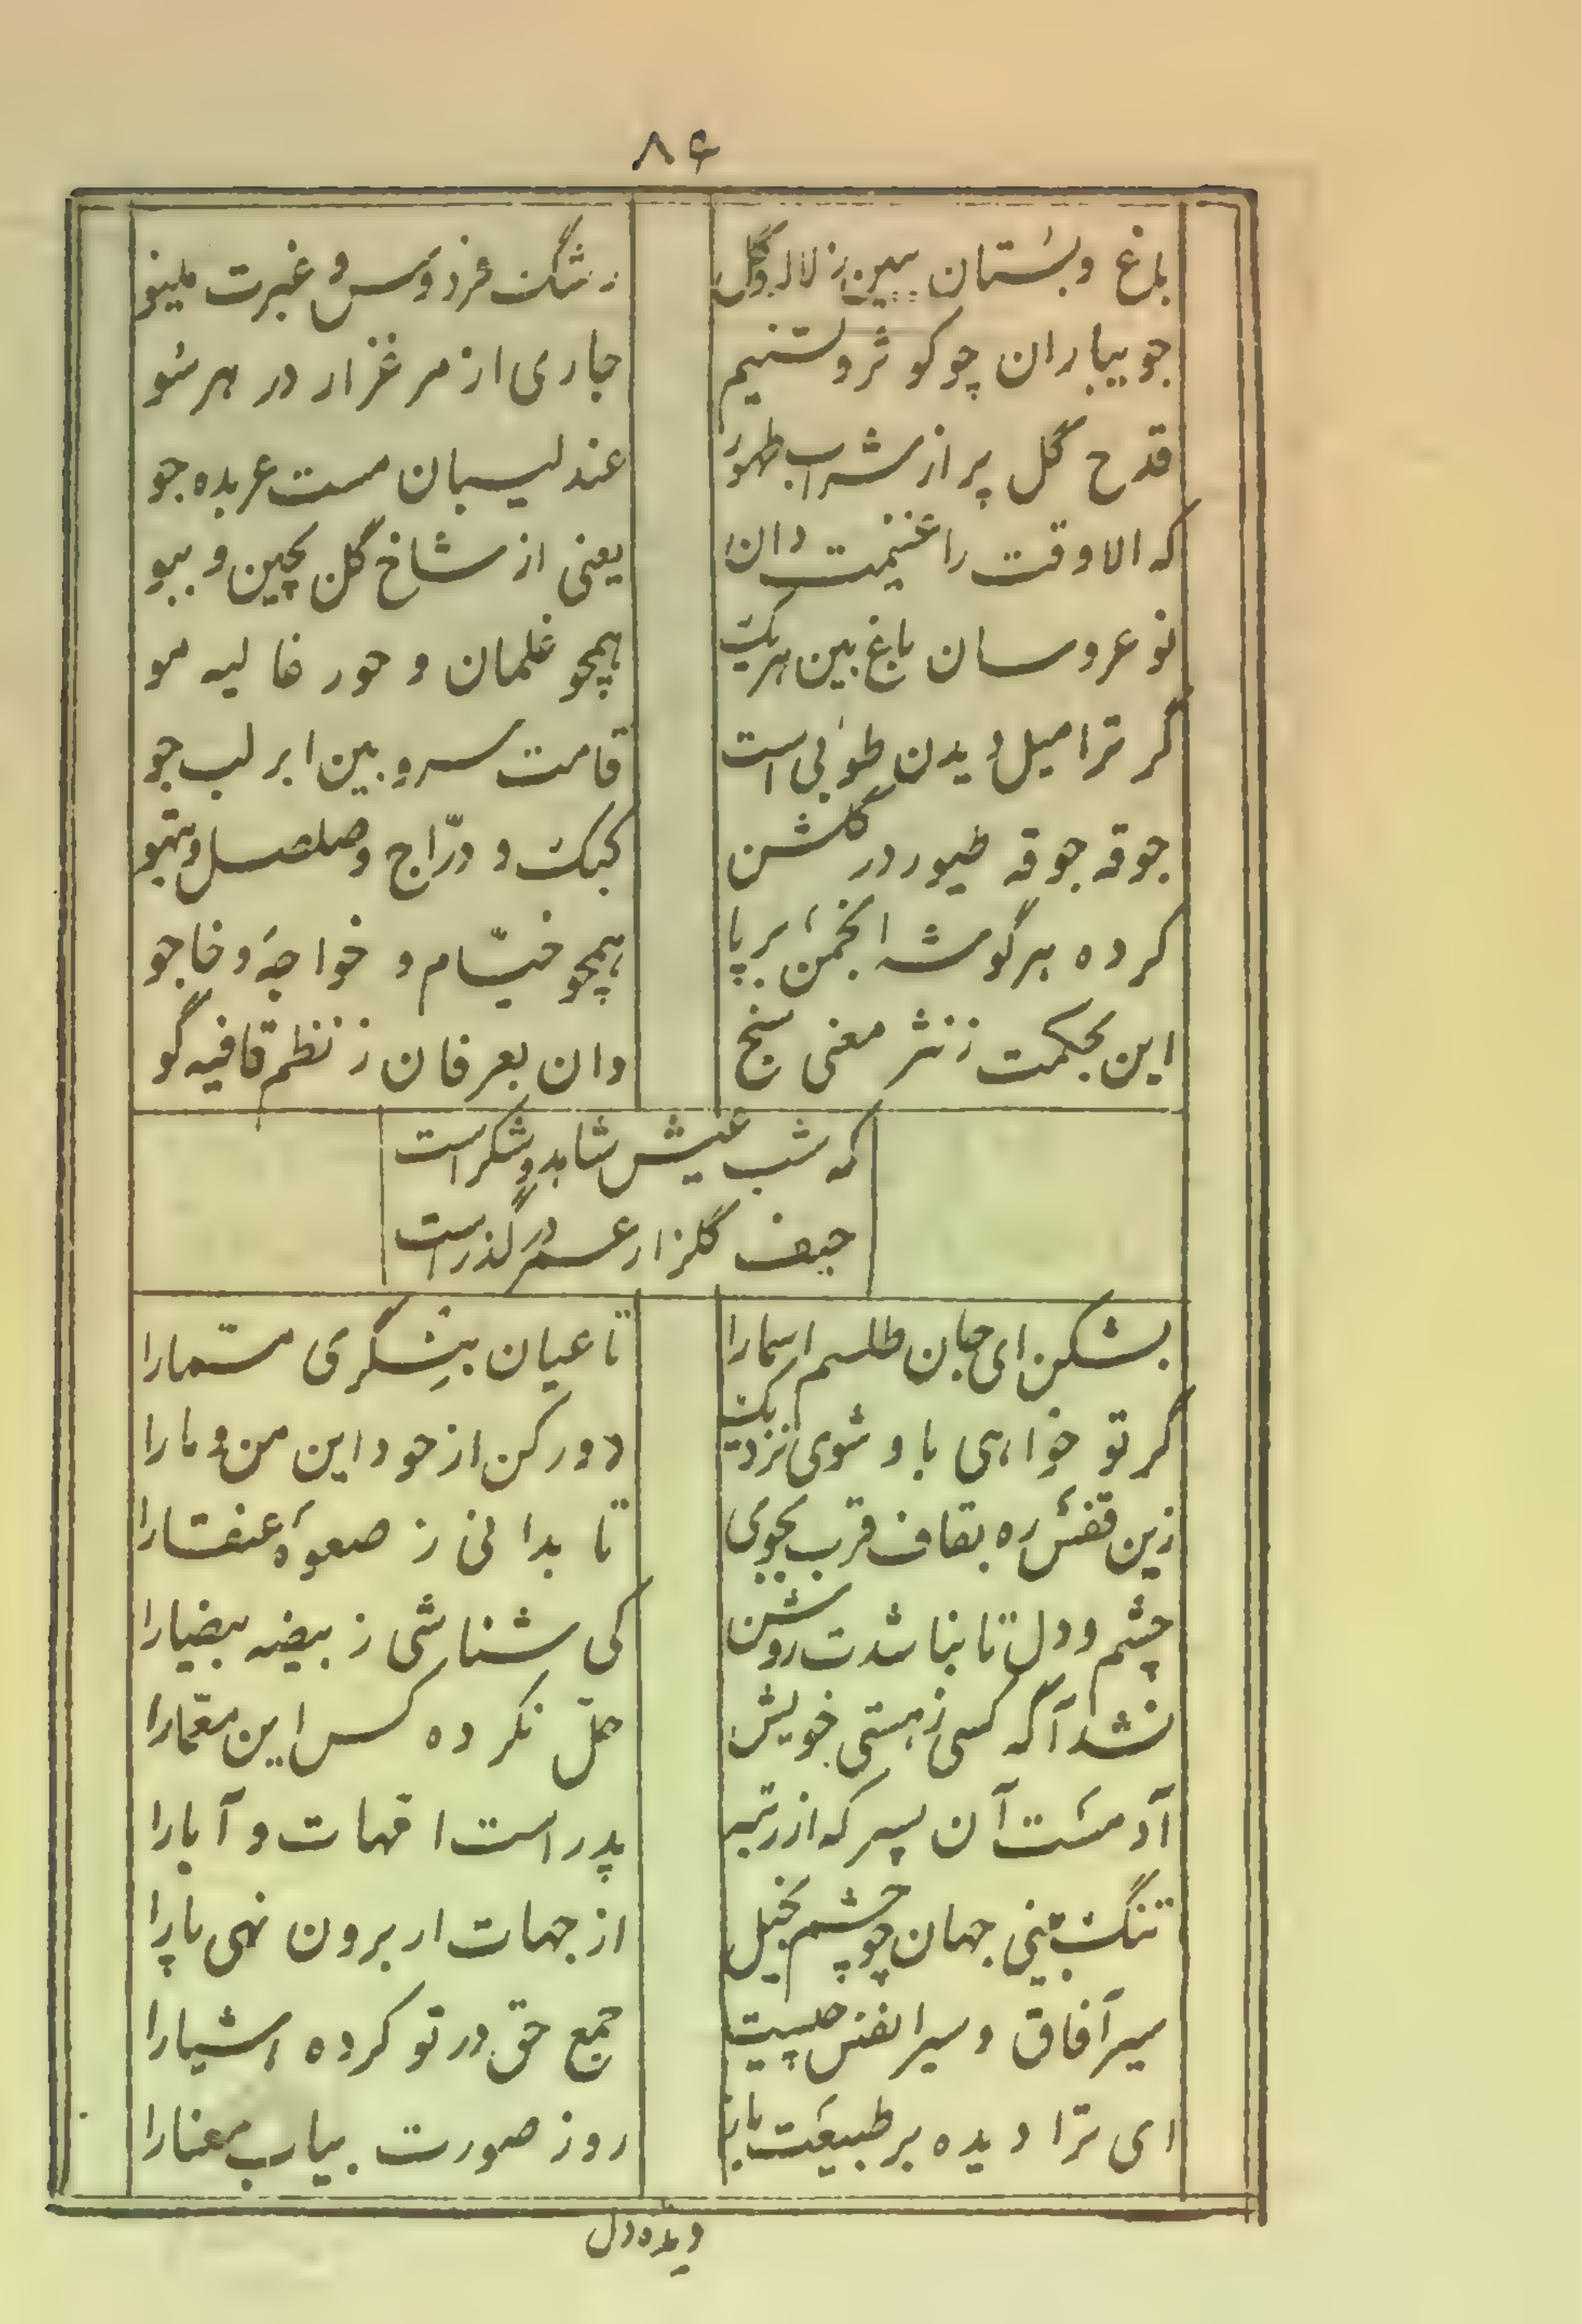 ۸۶
باغ و بستان ببین ز لاله و گل رشک فردوس و غیرت مینو
جویباران چو کوثر و تسنیم جاری از مرغزار در هر سو
قدح گل پر از شراب طهور عندلیبان مست عربده جو
که الا وقت را غنیمت دان یعنی از شاخ گل بچین و ببو
نو عروسان باغ بین هر یک همچو غلمان و حور غالیه مو
گر ترا میل دیدن طوبی است قامت سرو بین ابر لب جو
جوقه جوقه طیور در گلشن کبک و درّاج و صلصل و تیهو
کرده هر گوشه انجمن بر پا همچو خیّام و خواجه و خاجو
این بحکمت ز نثر معنی سنج وان بعرفان ز نظم قافیه گو
که شب عیش شاهد و شکر است
حیف گلزار عمر در گذر است
بشکن ای جان طلسم اسما را تا عیان بنگری مسمّا را
گر تو خواهی باو شوی نزدیک دور کن از خود این من و ما را
زین قفس ره بقاف قرب بجوی تا بدانی ز صعوه عنقا را
چشم و دل تا نباشدت روشن کی شناشی ز بیضه بیضا را
نشد آگه کسی ز هستی خویش حلّ نکرده کس این معمّا را
آدمست آن پسر که از رتبه پدر است امّهات و آبا را
تنگ بینی جهان چو چشم بخیل از جهات ار برون نهی پا را
سیر آفاق و سیر انفس چیست جمع حق در تو کرده اشیا را
ای ترا دیده بر طبیعت باز رو ز صورت بیاب معنا را
دیده دل